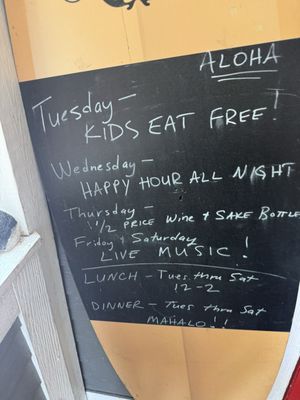 ALOHA
Tuesday -
KIDS EAT FREE!
Wednesday -
HAPPY HOUR ALL NIGHT
Thursday -
1/2 PRICE Wine + SAKE BOTTLE
Friday + Saturday
LIVE MUSIC!
LUNCH - Tues thru Sat
12-2
DINNER - Tues thru Sat
MAHALO!!